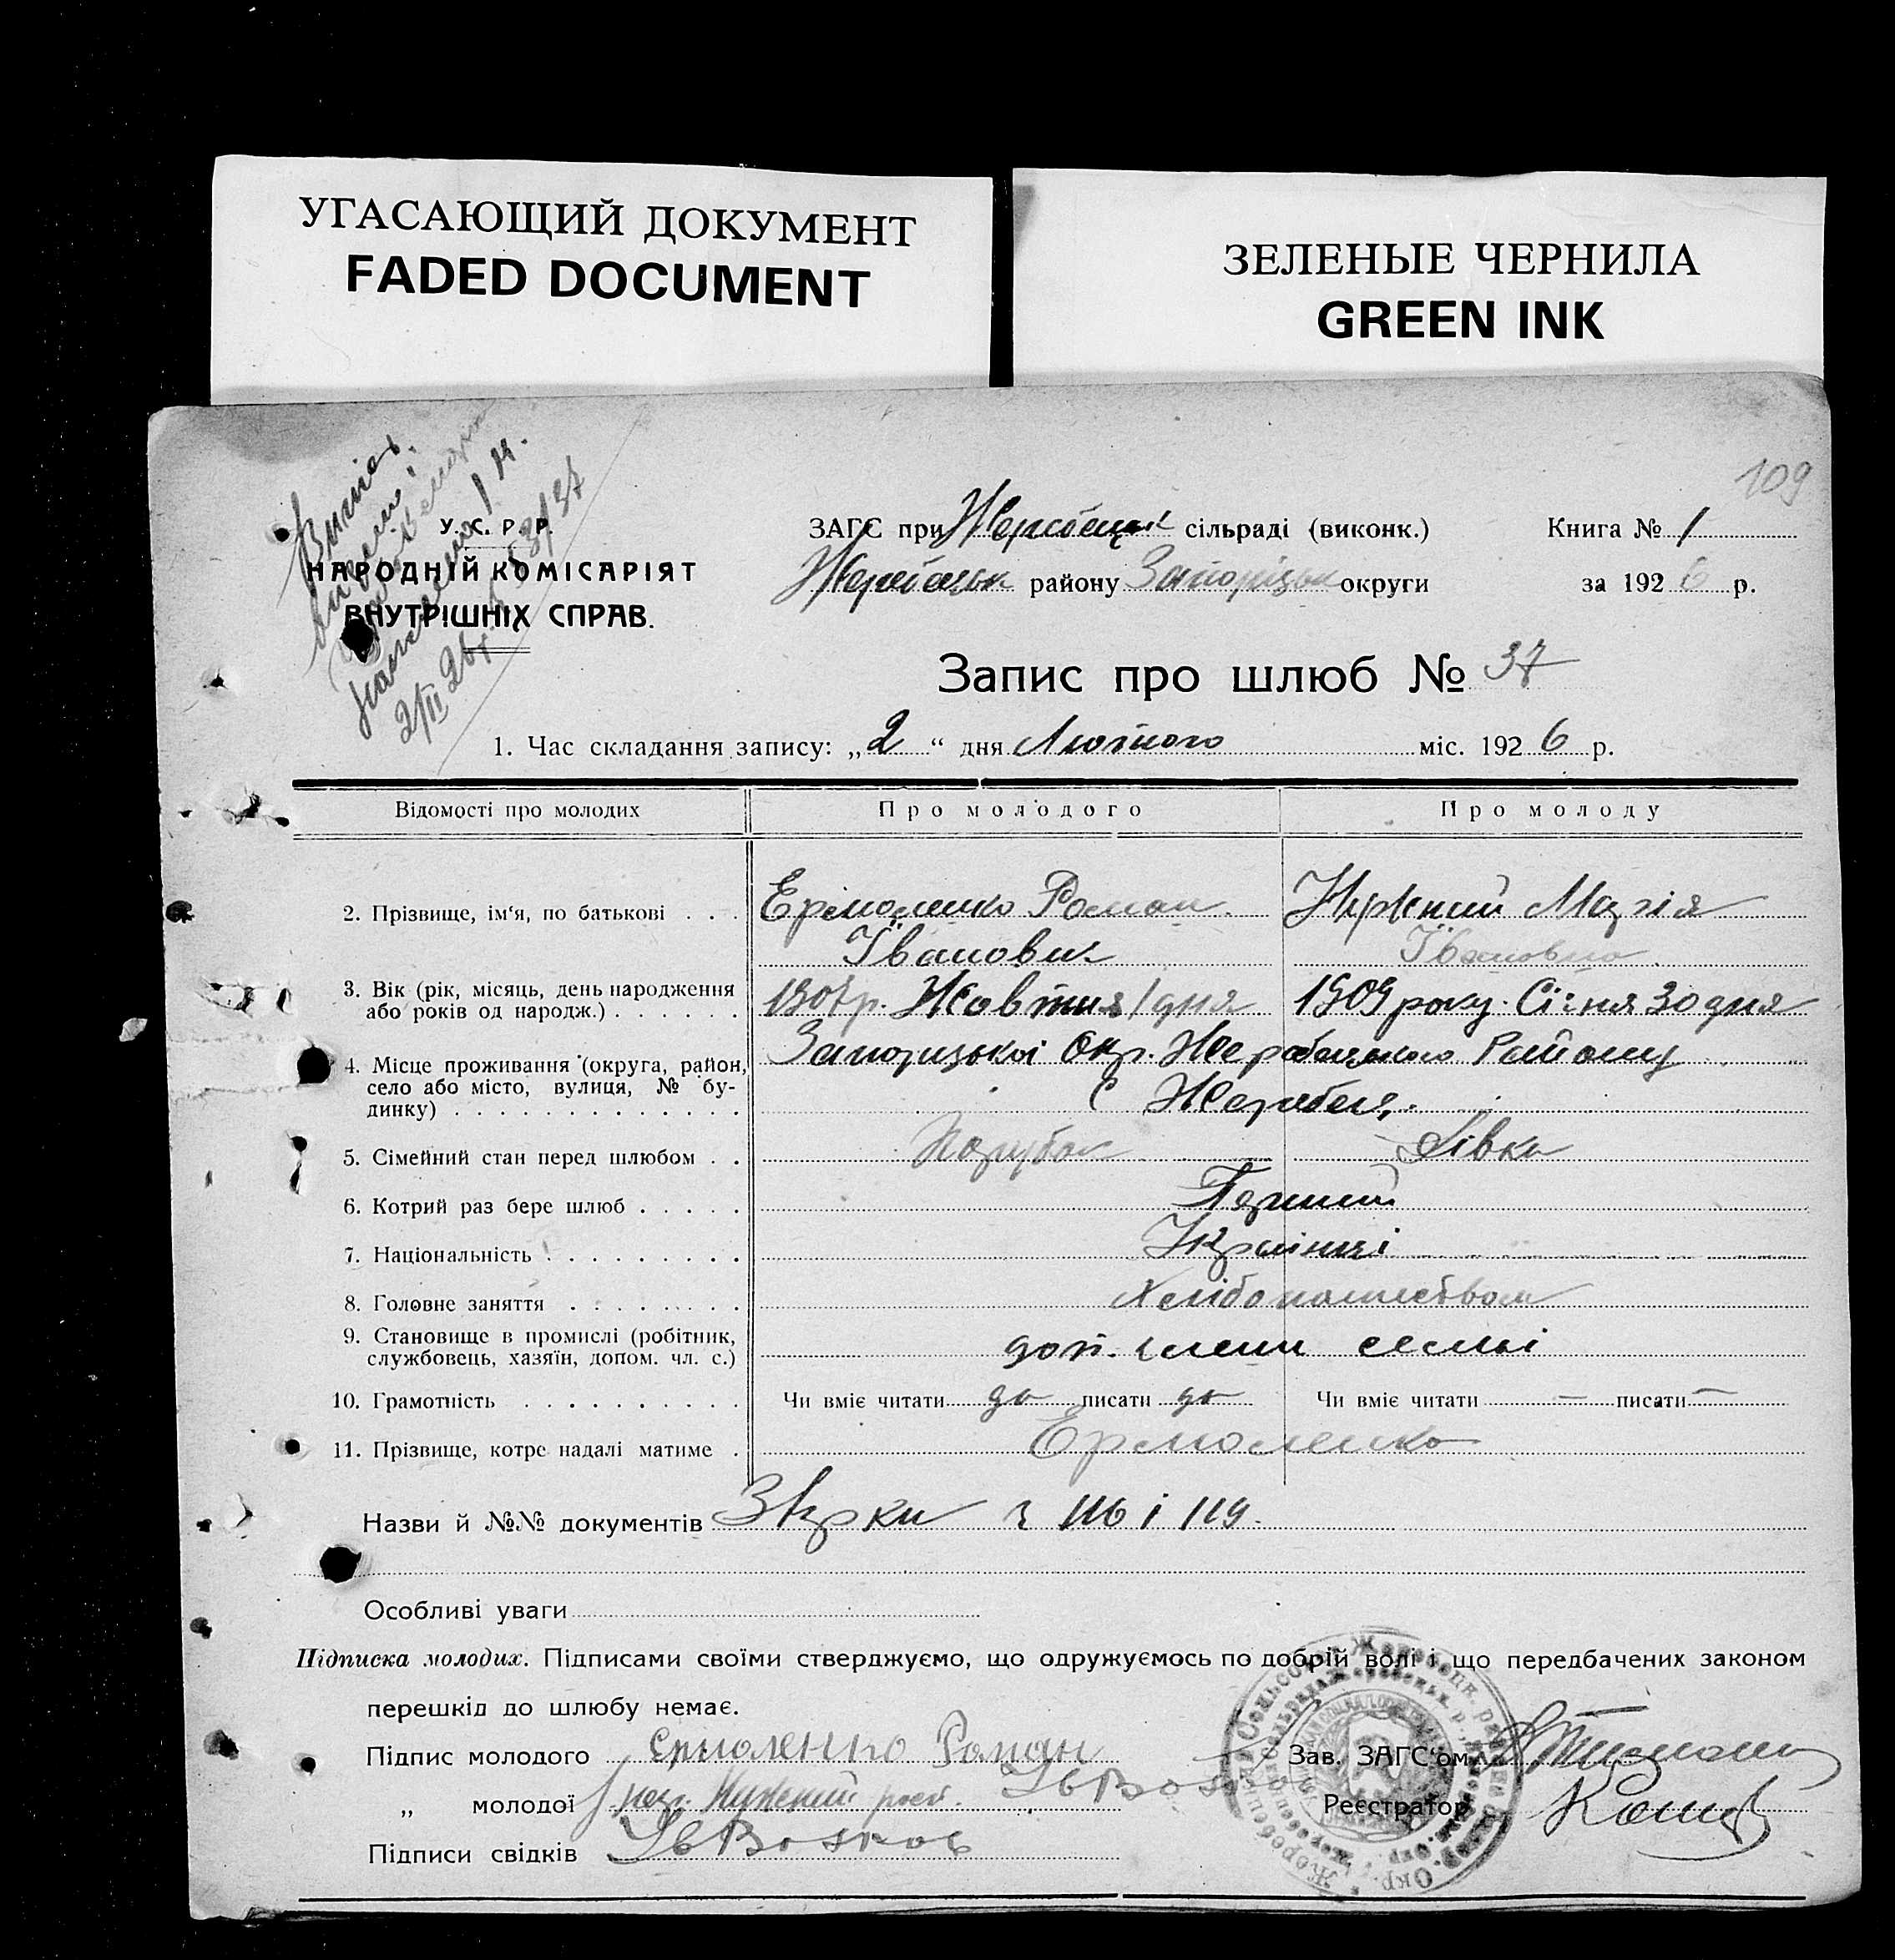 УГАСАЮЩИЙ ДОКУМЕНТ
FADED DOCUMENT
ЗЕЛЕНЫЕ ЧЕРНИЛА
GREEN INK
109
2/II 26 р.
У. С. Р. Р.
НАРОДНІЙ КОМІСАРІЯТ
ВНУТРІШНІХ СПРАВ.
ЗАГС при Жеребецьк сільраді (виконк.) Книга № 1
Жеребецьк району Запорізьк округи за 1926 р.
Запис про шлюб № 37
1. Час складання запису: „2“ дня Лютого міс. 1926 р.
Відомості про молодих Про молодого Про молоду
2. Прізвище, ім‘я, по батькові . . . Ермоленко Роман Мария
Іванович Івановна
3. Вік (рік, місяць, день народження 1907р. Жовтня 1 дня 1909 року Січня 30 дня
або років од народж.) . . . . . .
4. Місце проживання (округа, район, Запоризькоі Окр. Жеребецького Району
село або місто, вулиця, № бу- С Жеребець.
динку) . . . . . . . . . . . . .
5. Сімейний стан перед шлюбом . . Парубок Дівка
6. Котрий раз бере шлюб . . . . . Перший
7. Національність . . . . . . . . . Украінці
8. Головне заняття . . . . . . . . Хлібопашеством
9. Становище в промислі (робітник, доп. члени семьі
службовець, хазяїн, допом. чл. с.)
10. Грамотність . . . . . . . . . . Чи вміє читати да писати да Чи вміє читати — писати —
11. Прізвище, котре надалі матиме . Ермоленко
Назви й №№ документів ч 116 і 119.
Особливі уваги
Підписка молодих. Підписами своїми стверджуємо, що одружуємось по добрій волі і що передбачених законом
перешкід до шлюбу немає.
Підпис молодого Ермоленко Роман Зав. ЗАГС‘ом
„ молодої Реєстратор
Підписи свідків